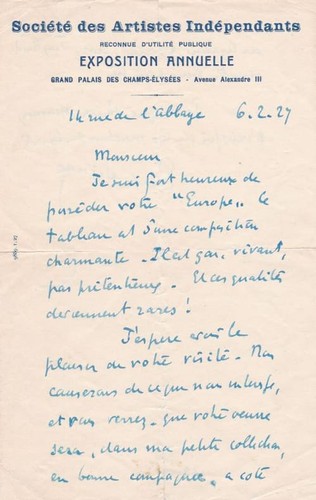 Société des Artistes Indépendants
RECONNUE D'UTILITÉ PUBLIQUE
EXPOSITION ANNUELLE
GRAND PALAIS DES CHAMPS-ÉLYSÉES - Avenue Alexandre III
14 rue de l'abbaye 6.2.27
Monsieur
Je suis fort heureux de
posséder votre "Europe". le
tableau est d'une composition
charmante. Il est gai, vivant,
pas prétentieux. Et ces qualités
deviennent rares !
J'espère avoir le
plaisir de votre visite. Nous
causerons de ce qui nous intéresse,
et vous verrez que votre oeuvre
sera, dans ma petite collection,
en bonne compagnie, a coté